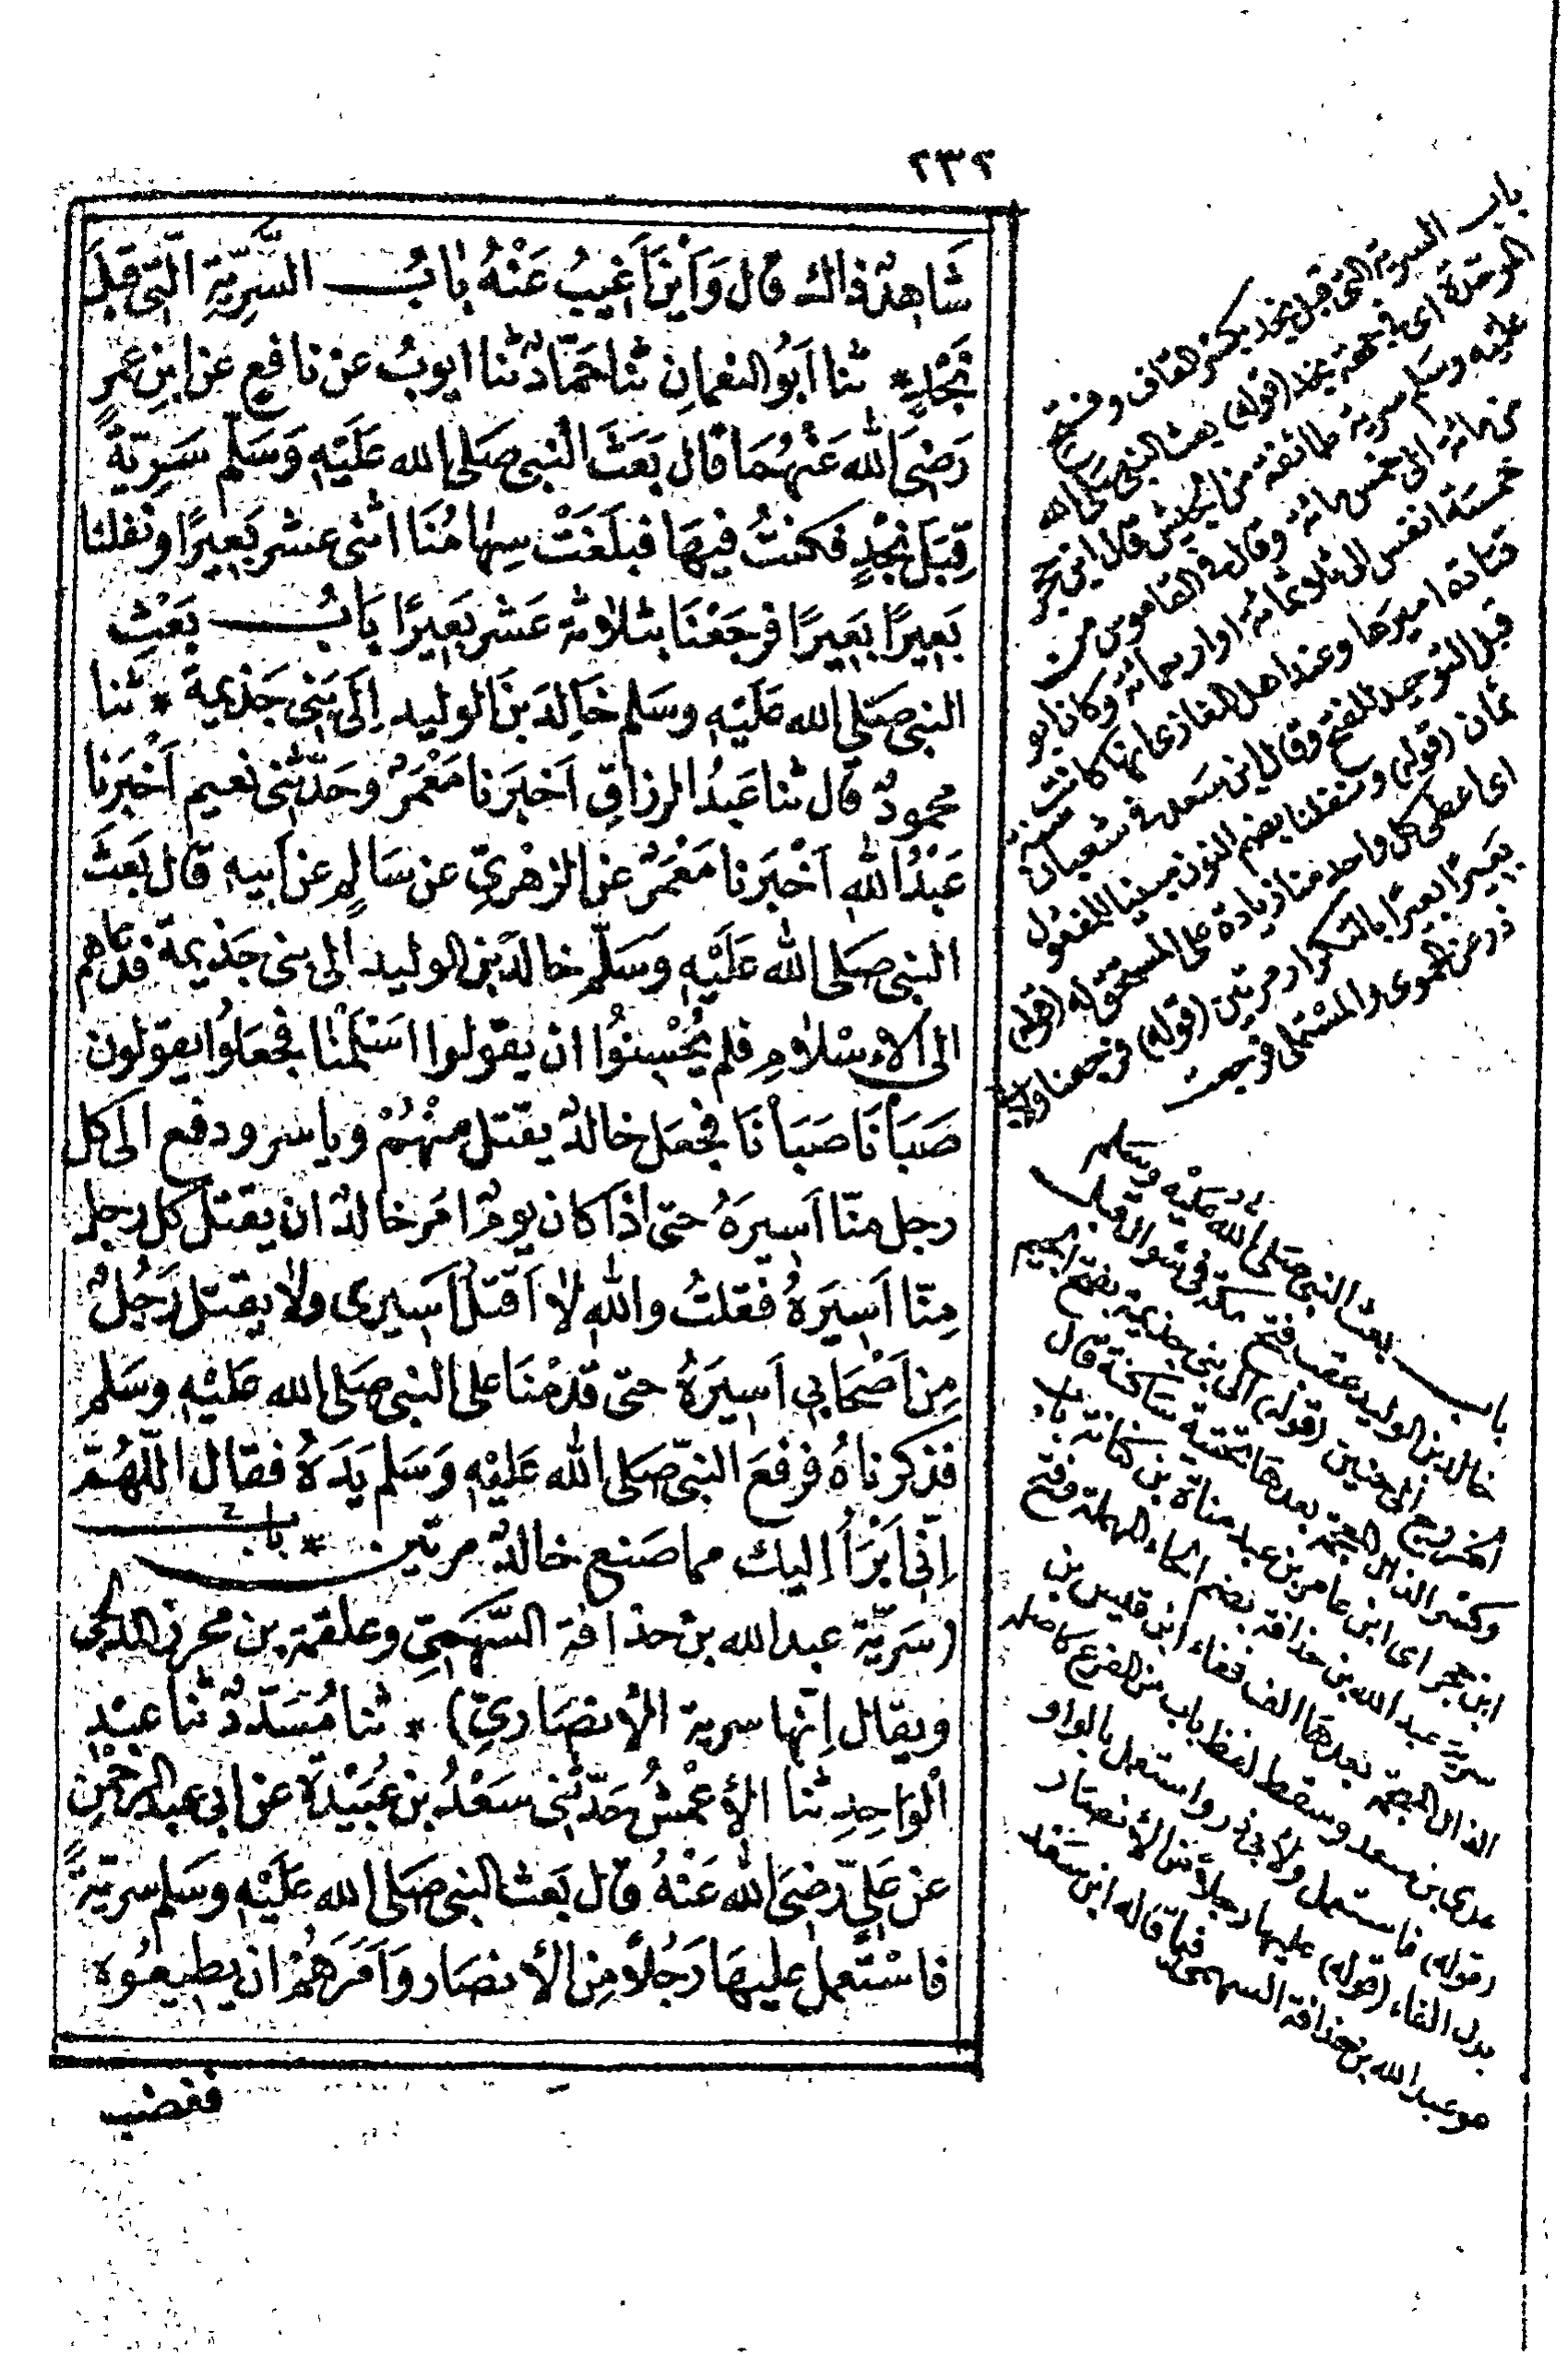 ٢٣٢
شَاهِدٌ ذاك قال وَأَيْنَ أَغِيبُ عَنْهُ بابُ السَّرِيَّةِ الَّتِي قِبَلَ
نَجْدٍ * ثنا أَبُو النعمانِ ثنا حَمَّادٌ ثنا ايوبُ عن نافع عن ابنِ عمر
رَضِيَ اللهُ عَنْهُمَا قال بَعَثَ النبي صَلى الله عَلَيْهِ وَسَلَّم سَرِيَّةً
قِبَلَ نَجْدٍ فكنتُ فيهَا فبلَغَتْ سِهامُنَا اثنى عشر بَعِيرًا ونفلنا
بَعِيرًا بَعِيرًا فرجَعْنَا بثلاثة عَشر بَعِيرًا بَابُ بَعْثِ
النبى صَلى الله عَلَيْهِ وسَلم خَالِدَ بنَ الوليد اِلَى بَنِى جَذيمة * ثنا
محمودٌ قال ثنا عَبدُ الرزاقِ اَخبَرَنا مَعْمَرٌ وحَدّثنى نعيم اَخْبَرَنا
عَبْدُ اللهِ اَخْبَرَنا مَعْمَرٌ عن الزهْرِيِّ عن سَالمٍ عن اَبيهِ قال بَعَثَ
النبى صَلى الله عَلَيْهِ وَسَلَّم خالدَ بْنَ الوليد الى بنى جَذيمة فدعاهم
الى الاسْلامِ فلم يُحْسِنُوا ان يقولوا اَسْلَمْنا فجعَلُوا يقولون
صَبَأْنَا صَبَأْنَا فجعَل خالدٌ يقتل مِنْهُمْ وياسر ودفع الى كل
رجل منّا اَسِيرَهُ حتى اذا كان يومٌ امَر خالدٌ ان يقتل كل رجل
مِنّا اَسِيرَهُ فقلتُ واللهِ لا اَقتلُ اَسِيرى ولا يقتل رَجُلٌ
مِنْ اَصْحَابِى اَسِيرَهُ حتى قَدِمْنَا على النبى صَلى الله عَلَيْهِ وسَلم
فذكرناهُ فرفعَ النبيّ صَلى الله عَليْهِ وَسَلم يَدَهُ فقال اللّهُمَّ
اِنّى اَبْرَأُ اِليكَ مما صَنع خالدٌ مرتين * باب
(سَرِيّة عبد الله بن حذافة السَّهْمِيّ وعلقمة بن محرز المدلجى
ويقال اِنّها سرية الأنصَاريّ) * ثنا مُسَدّدٌ ثنا عبْد
الْوَاحِدِ ثنا الأعْمشُ حَدّثنى سَعْدُ بن عُبَيْدَة عن ابى عبد الرحمْنِ
عن عَلِيّ رَضِيَ الله عَنْهُ قال بَعَث النبى صَلى الله عَلَيْهِ وسَلم سريّةً
فاسْتَعمل عليهَا رَجُلاً مِنَ الأنصَار وَاَمَرَهُمْ ان يطيعُوه
فغضب
باب السرية التى قبل نجد بكسر القاف وفتح
الموحدة اى فى جهة نجد (قوله) بعث النبى صلى الله
عليه وسلم سرية طائفة من الجيش قال ابن حجر
من مائة الى خمس مائة وقال فى القاموس من
خمسة انفس الى ثلاثمائة او اربعمائة وكان ابو
قتادة اميرها وعند اهل المغازى انها كانت
قبل التوجه للفتح وقال ابن سعد فى شعبان سنة
ثمان (قوله) ونفلنا بضم النون مبنيا للمفعول
اى اعطى كل واحد منا زيادة على المستحق له (قوله)
بعيرًا بعيرًا بالتكرار مرتين (قوله) فرجعنا ولابى
ذر عن الحموى والمستملى فرجعت
باب بعث النبى صلى الله عليه وسلم
خالد بن الوليد عقب فتح مكة فى شوال قبل
الخروج الى حنين (قوله) الى بنى جذيمة بفتح الجيم
وكسر الذال المعجمة بعدها تحتية ساكنة قال
ابن حجر اى ابن عامر بن عبد مناة بن كنانة باب
سرية عبد الله بن حذافة بضم الحاء المهملة وفتح
الذال المعجمة بعدها الف ففاء ابن قيس بن
عدى بن سعد وسقط لفظ باب من الفرع كاصله
(قوله) فاستعمل ولابى ذر واستعمل بالواو
بدل الفاء (قوله) عليها رجلا من الأنصار
هو عبد الله بن حذافة السهمى فيما قاله ابن سعد